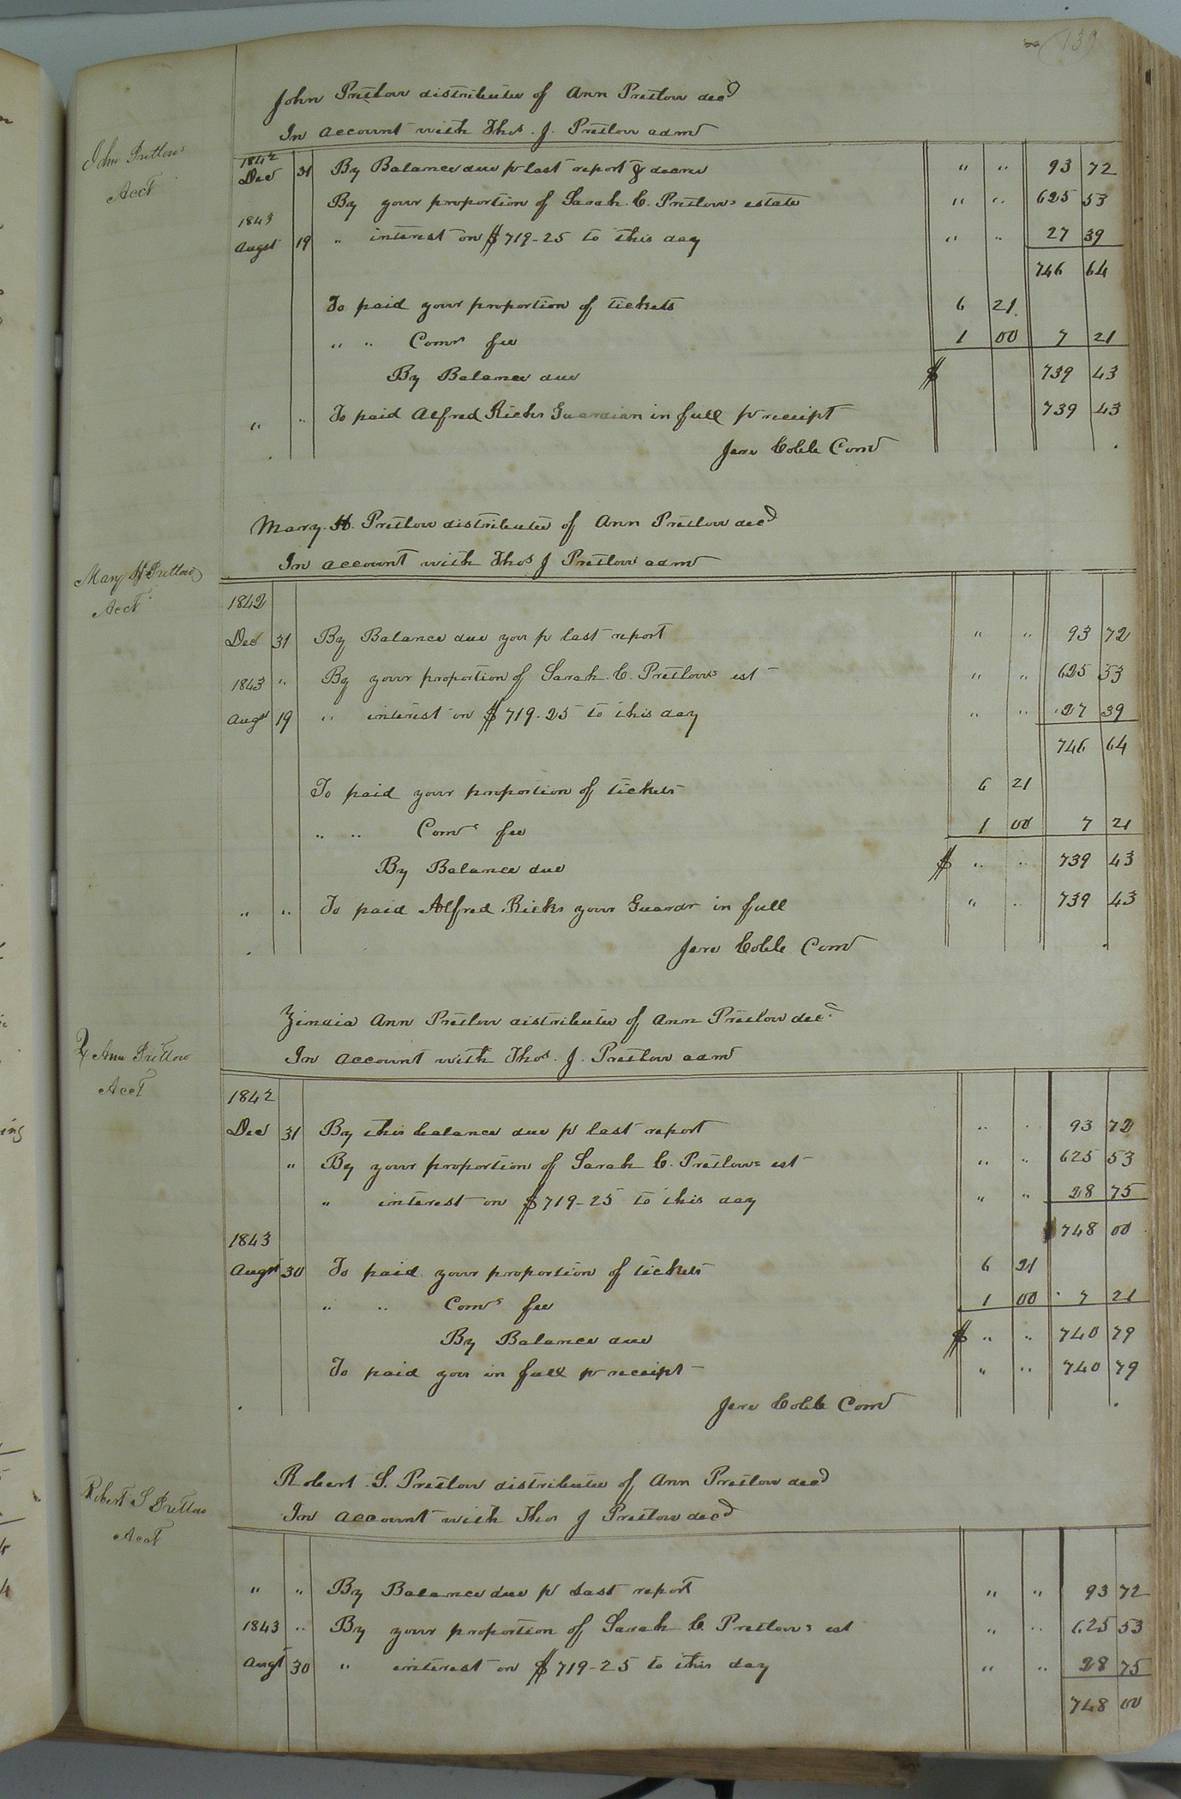 139
John Pretlow distributee of Ann Pretlow decd
In account with Thos. J. Pretlow admr
John Pretlow's
Acct
1842
Dec 31 By Balance due pr last report & decree " " 93 72
By your proportion of Sarah C. Pretlow's estate " " 625 53
1843
Augst 19 " interest on $719-25 to this day " " 27 39
746 64
To paid your proportion of tickets 6 21
" " Comrs fee 1 00 7 21
By Balance due $ 739 43
" " To paid Alfred Ricks Guardian in full pr receipt 739 43
Jere Cobb Comr
Mary H. Pretlow distributee of Ann Pretlow decd
In account with Thos J Pretlow admr
Mary H Pretlow
Acct
1842
Dec 31 By Balance due you pr last report " " 93 72
1843 " By your proportion of Sarah C. Pretlow's est " " 625 53
Augst 19 " interest on $719-25 to this day " " 27 39
746 64
To paid your proportion of tickets 6 21
" " Comrs fee 1 00 7 21
By Balance due $ " " 739 43
" " To paid Alfred Ricks your Guardr in full " " 739 43
Jere Cobb Comr
Ann Pretlow distributee of Ann Pretlow decd
In account with Thos. J. Pretlow admr
Z Ann Pretlow
Acct
1842
Dec 31 By this balance due pr last report " " 93 72
" By your proportion of Sarah C. Pretlow's est " " 625 53
" interest on $719-25 to this day " " 28 75
1843 748 00
Augst 30 To paid your proportion of tickets 6 21
" " Comrs fee 1 00 7 21
By Balance due $ " " 740 79
To paid you in full pr receipt " " 740 79
Jere Cobb Comr
Robert S. Pretlow distributee of Ann Pretlow decd
In account with Thos J Pretlow decd
Robert S Pretlow
Acct
" " By Balance due pr last report " " 93 72
1843 " By your proportion of Sarah C Pretlow's est " " 625 53
Augt 30 " interest on $719-25 to this day " " 28 75
748 00